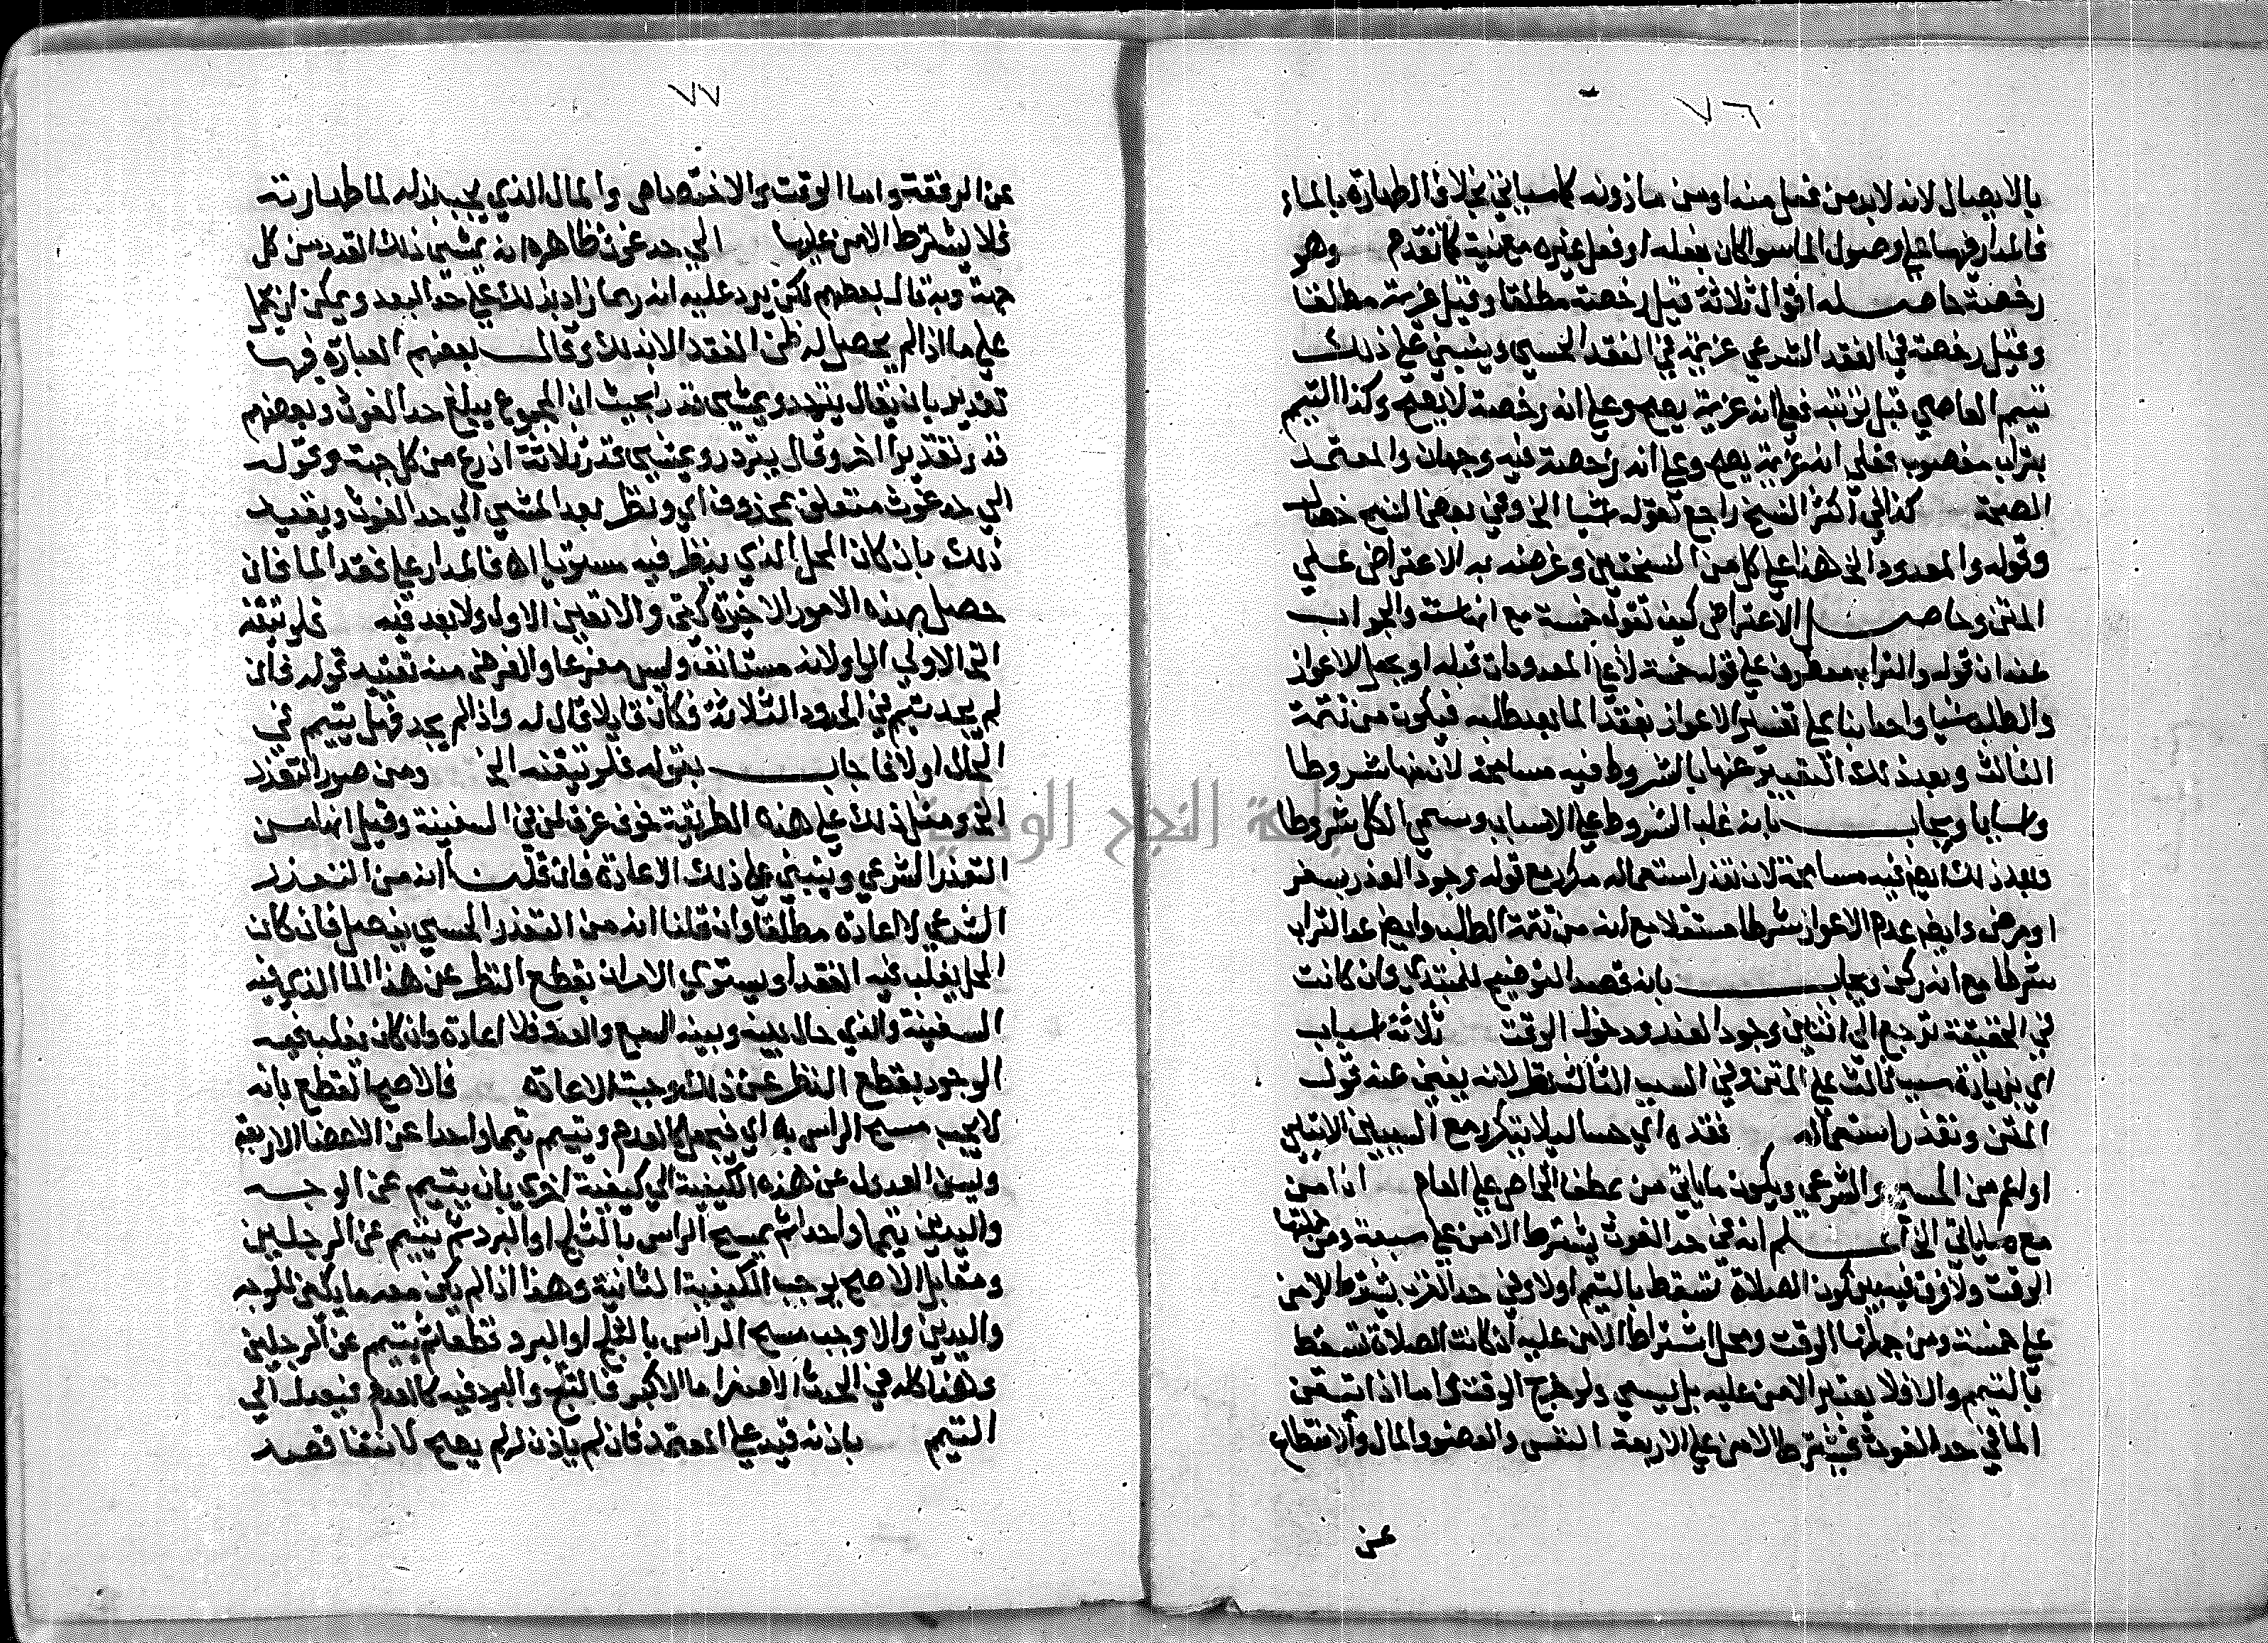 ٧٦
بالايصال لانه لابد من فعل منه او من ماذونه كما سياتي بخلاف الطهارة بالماء
فالمدار فيها على وصول الما سوا كان بفعله او فعل غيره مع نية كما تقدم وهو
رخصة حاصله اقوال ثلاثة قيل رخصة مطلقا وقيل عزيمة مطلقا
وقيل رخصة في الفقد الشرعي عزيمة في الفقد الحسي وينبني على ذلك
تيمم العاصي قبل توبته فعلى انه عزيمة يصح وعلى انه رخصة لا يصح وكذا التيمم
بتراب مغصوب فعلى انه عزيمة يصح وعلى انه رخصة فيه وجهان والمعتمد
الصحة كذا في اكثر النسخ راجع لقوله اشيا الخ وفي بعض النسخ خصال
وقوله والمعدود الخ هنا على كل من النسختين وغرضه به الاعتراض على
المتن وحاصل الاعتراض كيف تقوله خمسة مع انها ستة والجواب
عنه ان قوله والتراب معطوف على قوله خمسة لا على المعدودات قبله او يجعل الاعواز
والطلب شيا واحدا بنا على تفسير الاعواز بفقد الما بعد طلبه فيكون من تتمة
الثالث وبعد ذلك التعبير عنها بالشروط فيه مسامحة لان منها شروطا
واسبابا ويجاب بانه غلب الشروط على الاسباب وسمى الكل شروطا
وبعد ذلك ايضا فيه مسامحة لان تعذر استعماله مكرر مع قوله وجود العذر بسفر
او مرض وايضا عدم الاعواز شرطا مستقلا مع انه من تتمة الطلب وايضا عد التراب
شرطا مع انه ركن ويجاب بانه قصد التوضيح للمبتدي وان كانت
في الحقيقة ترجع الى اثنين وجود العذر ودخول الوقت ثلاثة اسباب
اي بزيادة سبب ثالث على المتن وفي السبب الثالث نظر لانه يغني عنه قول
المتن وتعذر استعماله فقده اي حسا ليلا يتكرر مع السببين الاتيين
او اعم من الحسي والشرعي ويكون ما ياتي من عطف الخاص على العام ان امن
مع ما ياتي الخ اعلم انه في حد الغوث يشترط الامن على سبعة ومن جملتها
الوقت ولا فرق فيه بين كون الصلاة تسقط بالتيمم او لا وفي حد القرب يشترط الامن
على خمسة ومن جملتها الوقت ومحل اشتراط الامن عليه ان كانت الصلاة تسقط
بالتيمم والا فلا يعتبر الامن عليه بل يسعى ولو خرج الوقت واما اذا تيقن
الما في حد الغوث فيشترط الامن على الاربعة النفس والعضو والمال والانقطاع
عن
٧٧
عن الرفقة واما الوقت والاختصاص والمال الذي يجب بذله لما طهارته
فلا يشترط الامن عليها الى حد غوث ظاهره انه يمشي ذلك القدر من كل
جهة وبه قال بعضهم لكن يرد عليه انه ربما زاد بذلك على حد البعد ويمكن ان يحمل
على ما اذا لم يحصل له ظن الفقد الا بذلك وقال بعضهم العبارة فيها
تقدير بان يقال يتردد ويمشي قدر بحيث ان المجموع يبلغ حد الغوث وبعضهم
قدر تقديرا اخر وقال يتردد ويمشي قدر ثلاثة اذرع من كل جهة وقوله
الى حد غوث متعلق بمحذوف اي ونظر بعد المشي الى حد الغوث ويقيد
ذلك بان كان المحل الذي ينظر فيه مستويا اه فالمدار على فقد الما فان
حصل بهذه الامور الاخيرة كفى والا تعين الاول ولا بعد فيه فلو تيقنه
الخ الاولى الواو لانه مستانف وليس مفرعا والغرض منه تقييد قوله فان
لم يجد تيمم في الحدود الثلاثة فكأن قايلا قال له واذا لم يجد فهل يتيمم في
الحال او لا فاجاب بقوله فلو تيقنه الخ ومن صور التعذر
الخ ومثل ذلك على هذه الطريقة خوف غرق لمن في السفينة وقيل انها من
التعذر الشرعي وينبني على ذلك الاعادة فان قلت انه من التعذر
الشرعي لا اعادة مطلقا وان قلنا انه من التعذر الحسي يفصل فان كان
المحل يغلب فيه الفقد او يستوي الامران بقطع النظر عن هذا الما الذي فيه
السفينة والذي حال بينه وبينه السبع والعدو فلا اعادة وان كان يغلب فيه
الوجود بقطع النظر عن ذلك وجبت الاعادة فالاصح القطع بانه
لا يجب مسح الراس به اي فيجعل كالعدم ويتيمم تيمما واحدا عن الاعضا الاربعة
وليس العدول عن هذه الكيفية الى كيفية اخرى بان يتيمم عن الوجه
واليدين تيمما واحدا ثم يمسح الراس بالثلج او البرد ثم يتيمم عن الرجلين
ومقابل الاصح يوجب الكيفية الثانية وهذا اذا لم يكن معه ما يكفي للوجه
واليدين والا وجب مسح الراس بالثلج او البرد قطعا ثم يتيمم عن الرجلين
وهذا كله في الحدث الاصغر اما الاكبر فالثلج والبرد فيه كالعدم فيعدل الى
التيمم باذنه قيد على المعتمد فان لم ياذن له لم يصح لانتفا قصد
جامعة النجاح الوطنية